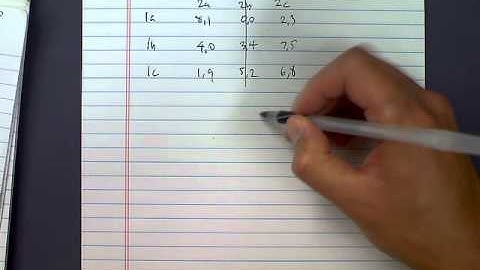 2a 2b 2c
1a 8,1 0,0 2,3
1b 4,0 3,4 7,5
1c 1,9 5,2 6,8